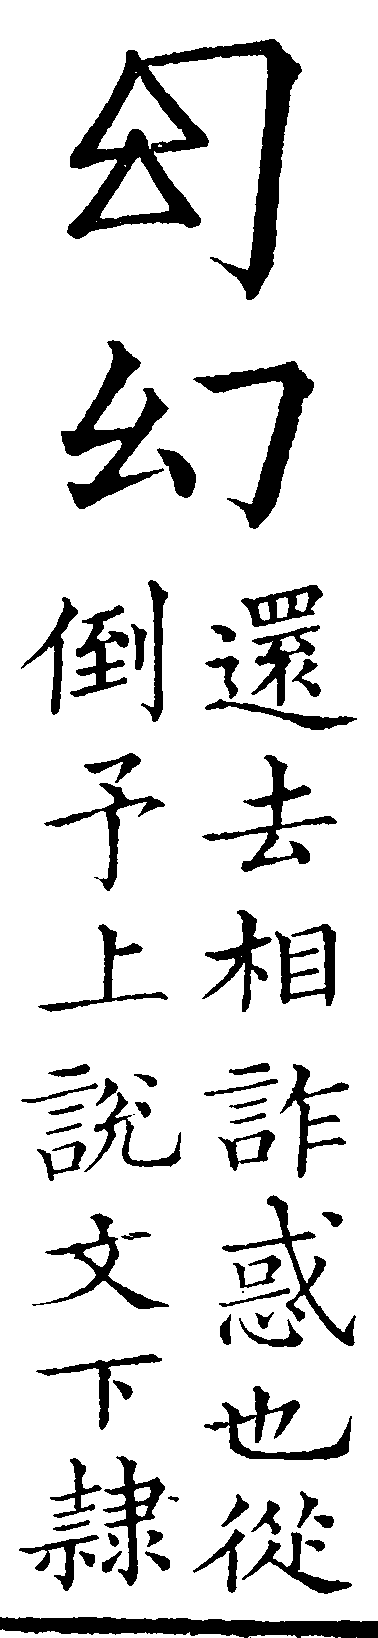 𠄔
幻
還去相詐惑也從
倒予上說文下隸